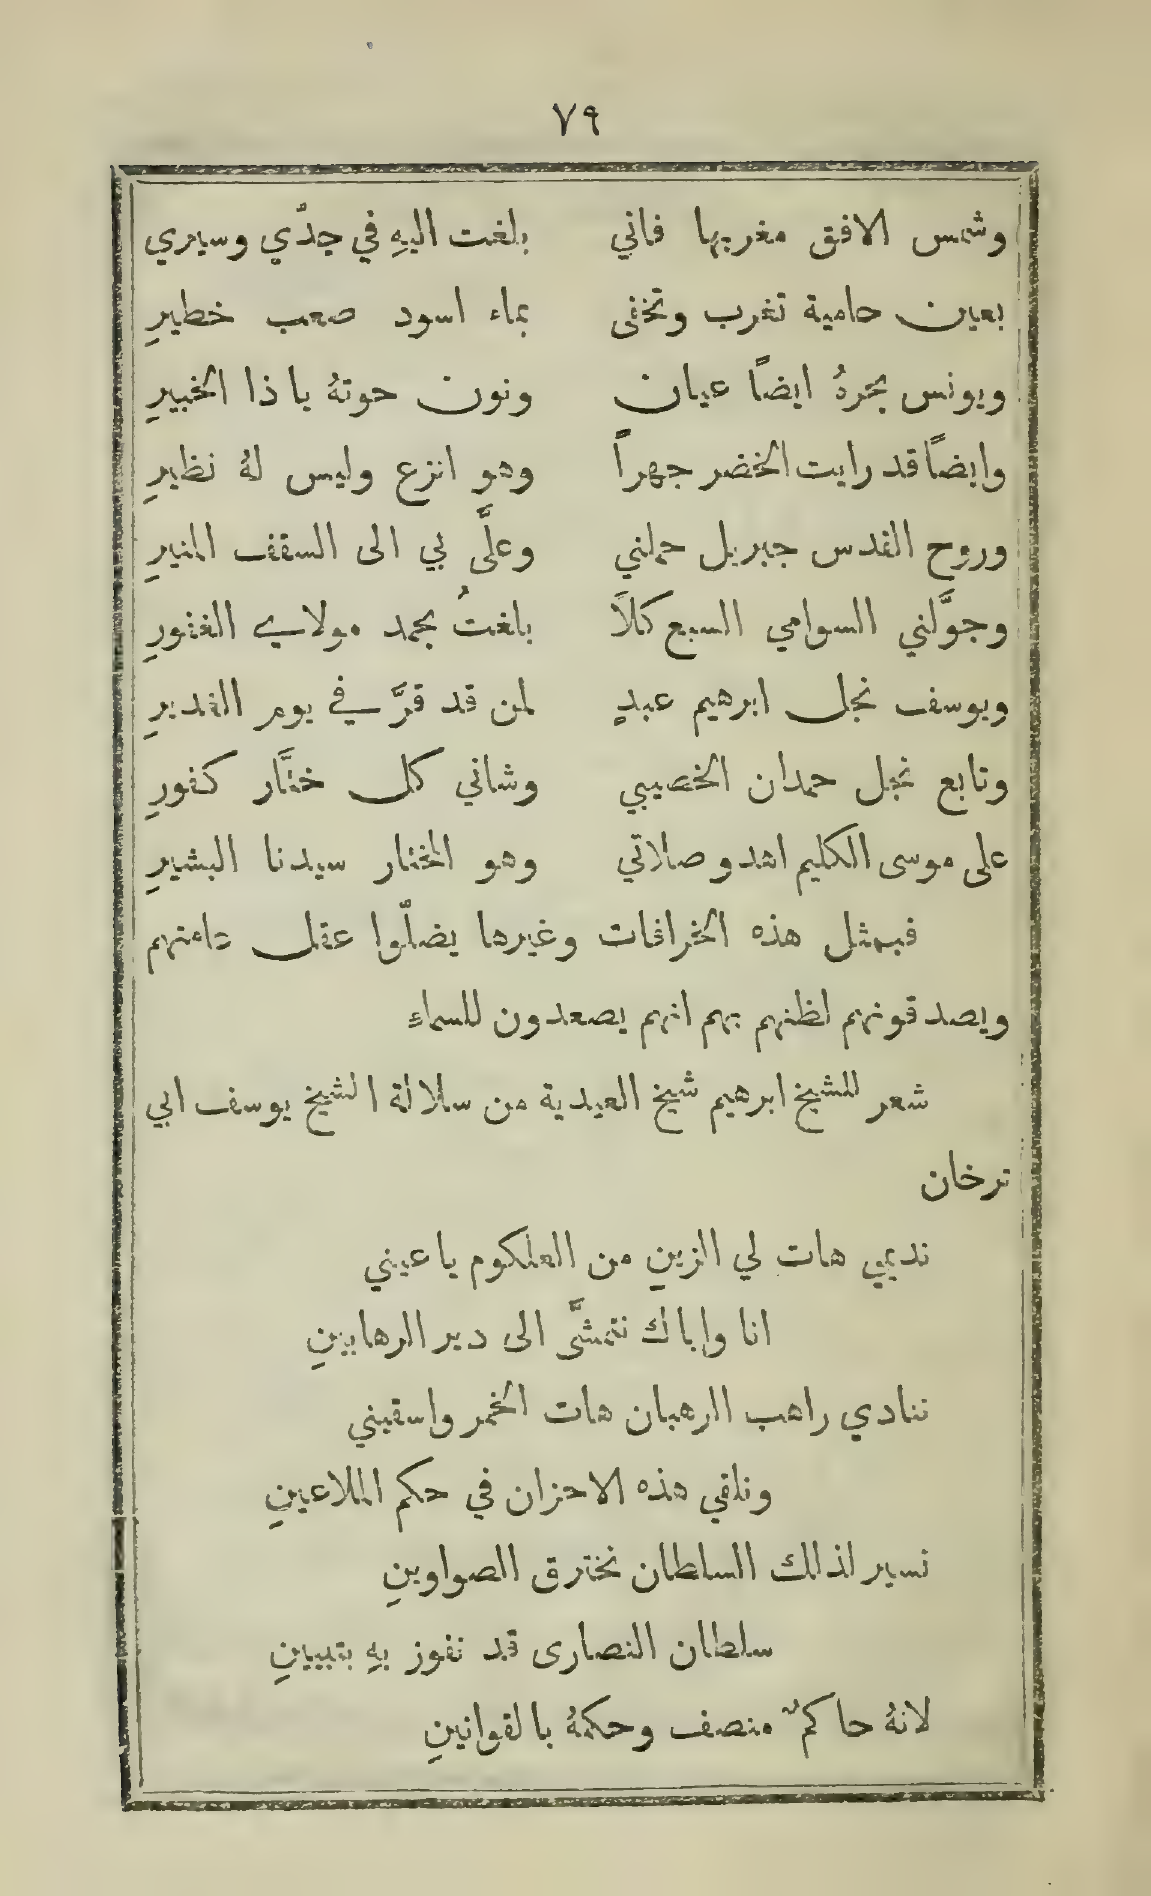 ٧٩
وشمس الافق مغربها فاني بلغت اليهِ في جدّي وسيري
بعين حامية تغرب وتخفى بماء اسود صعب خطيرِ
ويونس بحرهُ ايضًا عيان ونون حوتهُ يا ذا الخبيرِ
وايضًا قد رايت الخضر جهراً وهو انزع وليس لهُ نظيرِ
وروح القدس جبريل حملني وعلَّى بي الى السقف المنيرِ
وجوَّلني السوامي السبع كلاَّ بلغتُ بحمد مولاي الغفورِ
ويوسف نجل ابرهيم عبدٍ لمن قد قرَّ في يوم الغديرِ
وتابع نجل حمدان الخصيبي وشاني كل ختَّار كفورِ
على موسى الكليم اهدو صلاتي وهو المختار سيدنا البشيرِ
فبمثل هذه الخرافات وغيرها يضلّوا عقل عامتهم
ويصدقونهم لظنهم بهم انهم يصعدون للسماءِ
شعر للشيخ ابرهيم شيخ العيدية من سلالة الشيخ يوسف ابي
ترخان
نديمي هات لي الزينِ من العلكوم يا عيني
انا واياك نتمشَّى الى دير الرهابينِ
ننادي راهب الرهبان هات الخمر واسقيني
ونلقي هذه الاحزان في حكم الملاعينِ
نسير لذلك السلطان نخترق الصواوينِ
سلطان النصارى قد نفوز بهِ بتبيينِ
لانهُ حاكمٌ منصف وحكمهُ بالقوانينِ